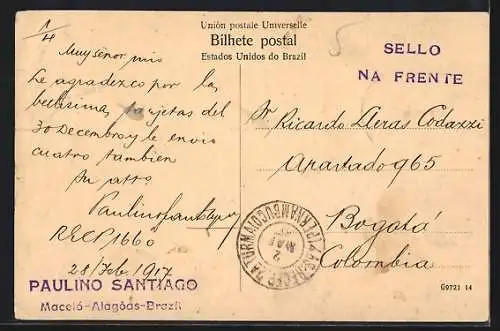 Unión postale Universelle
Bilhete postal
Estados Unidos do Brazil
SELLO
NA FRENTE
1/4
5
Muy señor mio
Le agradezco por las
bellisimas tarjetas del
30 Decembro y le envio
cuatro tambien
Su atto.
Paulino Santiago
1660
28/Feb. 1917
PAULINO SANTIAGO
Maceió-Alagôas-Brazil
Sr Ricardo Lleras Codazzi
Apartado 965
Bogotá
Colombia
PERNAMBUCO
2
MAR
G9721 14